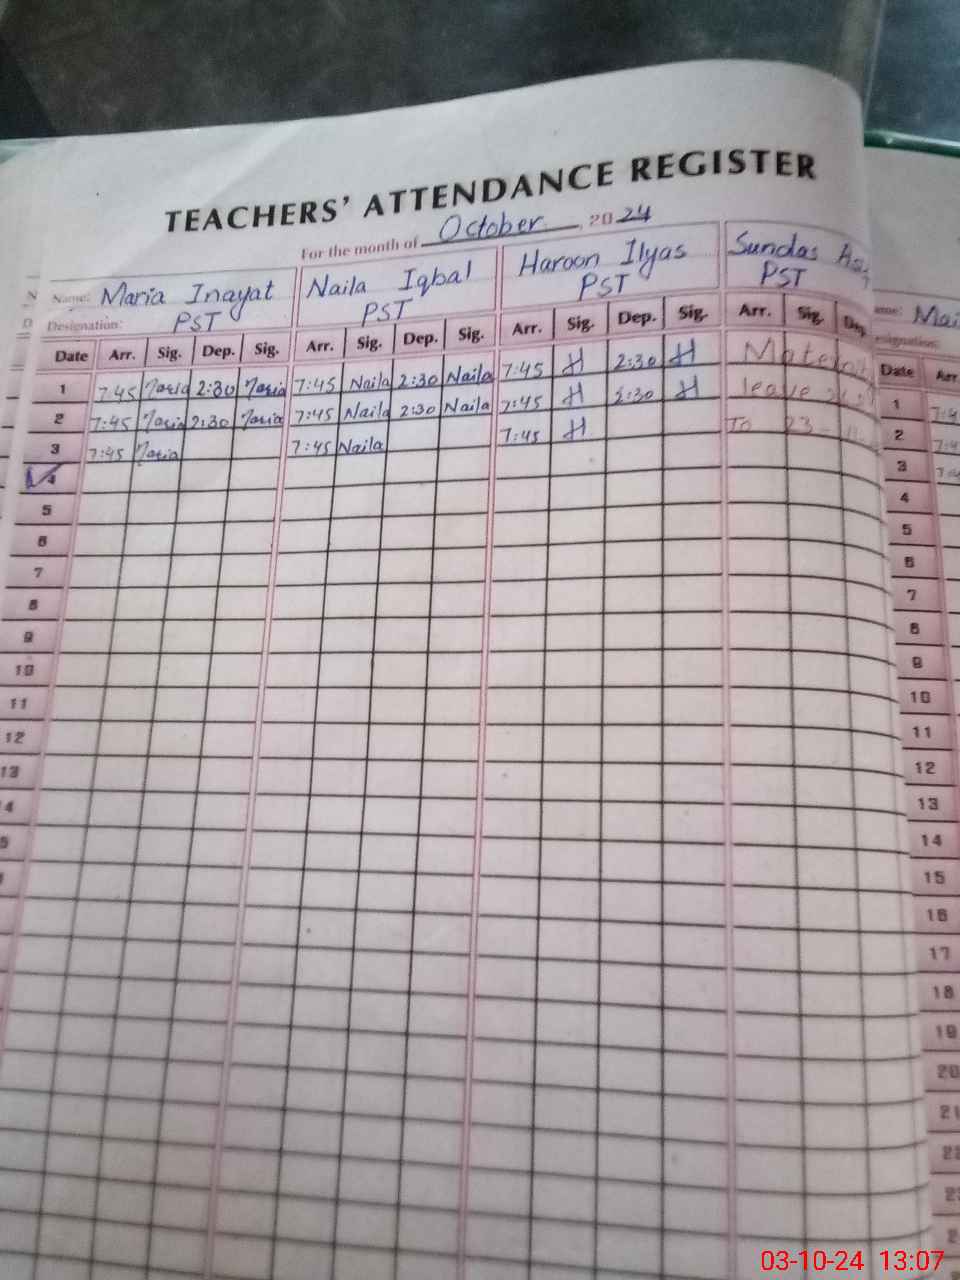 TEACHERS' ATTENDANCE REGISTER
For the month of October 2024
Name: Maria Inayat Naila Iqbal Haroon Ilyas Sundas
Designation: PST PST PST PST
Date Arr. Sig. Dep. Sig. Arr. Sig. Dep. Sig. Arr. Sig. Dep. Sig. Arr. Sig. Dep. Date Arr
1 7:45 Maria 2:30 Maria 7:45 Naila 2:30 Naila 7:45 H 2:30 H 1
2 7:45 Maria 2:30 Maria 7:45 Naila 2:30 Naila 7:45 H 2:30 H leave 2
3 7:45 Maria 7:45 Naila 7:45 H To 23 3
4 4
5 5
6 6
7 7
8 8
9 9
10 10
11 11
12 12
13 13
14
15
16
17
18
19
20
21
03-10-24 13:07